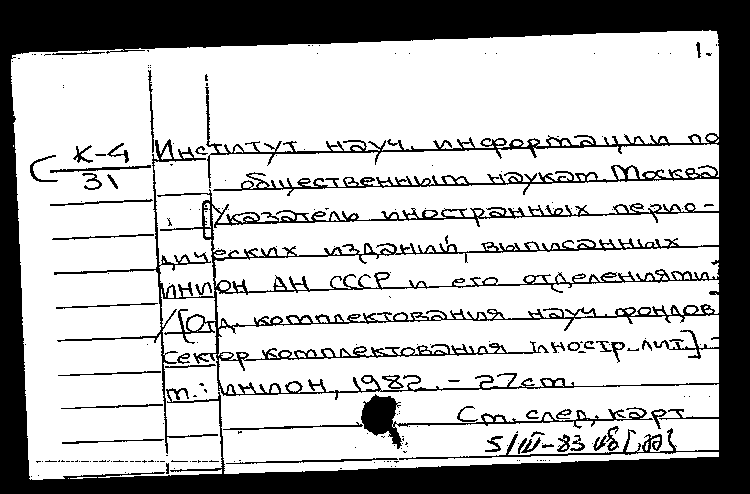 1.
С К-4
31
Институт науч. информации по
общественным наукам. Москва
[Указатель иностранных перио-
дических изданий, выписанных
ИНИОН АН СССР и его отделениями.
/[Отд. комплектования науч. фондов
Сектор комплектования иностр. лит.]. -
М.: ИНИОН, 1982. - 27см.
См. след. карт
5/III-83